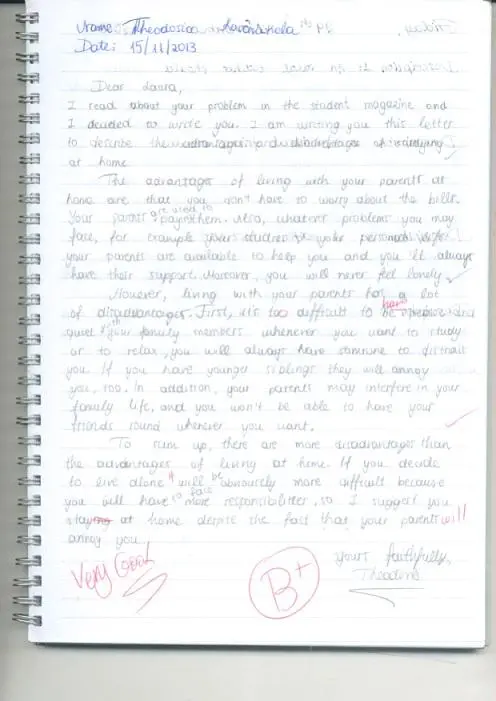 Name: Theodosia
Date: 15/11/2013
Dear Laura,
I read about your problem in the student magazine and
I decided to write you. I am writing you this letter
to describe the advantages and disadvantages of staying
at home
The advantages of living with your parents at
home are that you don't have to worry about the bills.
Your parents are used to paying them. Also, whatever problems you may
face, for example your studies or your personal life
your parents are available to help you and you'll always
have their support. Moreover, you will never feel lonely.
However, living with your parents has a lot
of disadvantages. First, it's too difficult to have and
quiet with your family members whenever you want to study
or to relax, you will always have someone to distract
you. If you have younger siblings they will annoy
you, too. In addition, your parents may interfere in your
family life, and you won't be able to have your
friends round whenever you want.
To sum up, there are more disadvantages than
the advantages of living at home. If you decide
to live alone it will be obviously more difficult because
you will have to face more responsibilities, so I suggest you
staying at home despite the fact that your parents will
annoy you
Very Good
B+
yours faithfully,